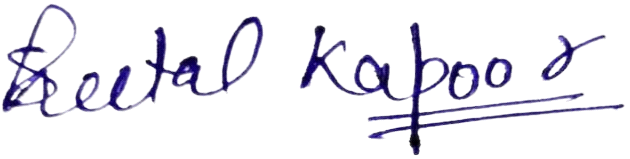 Sheetal Kapoor